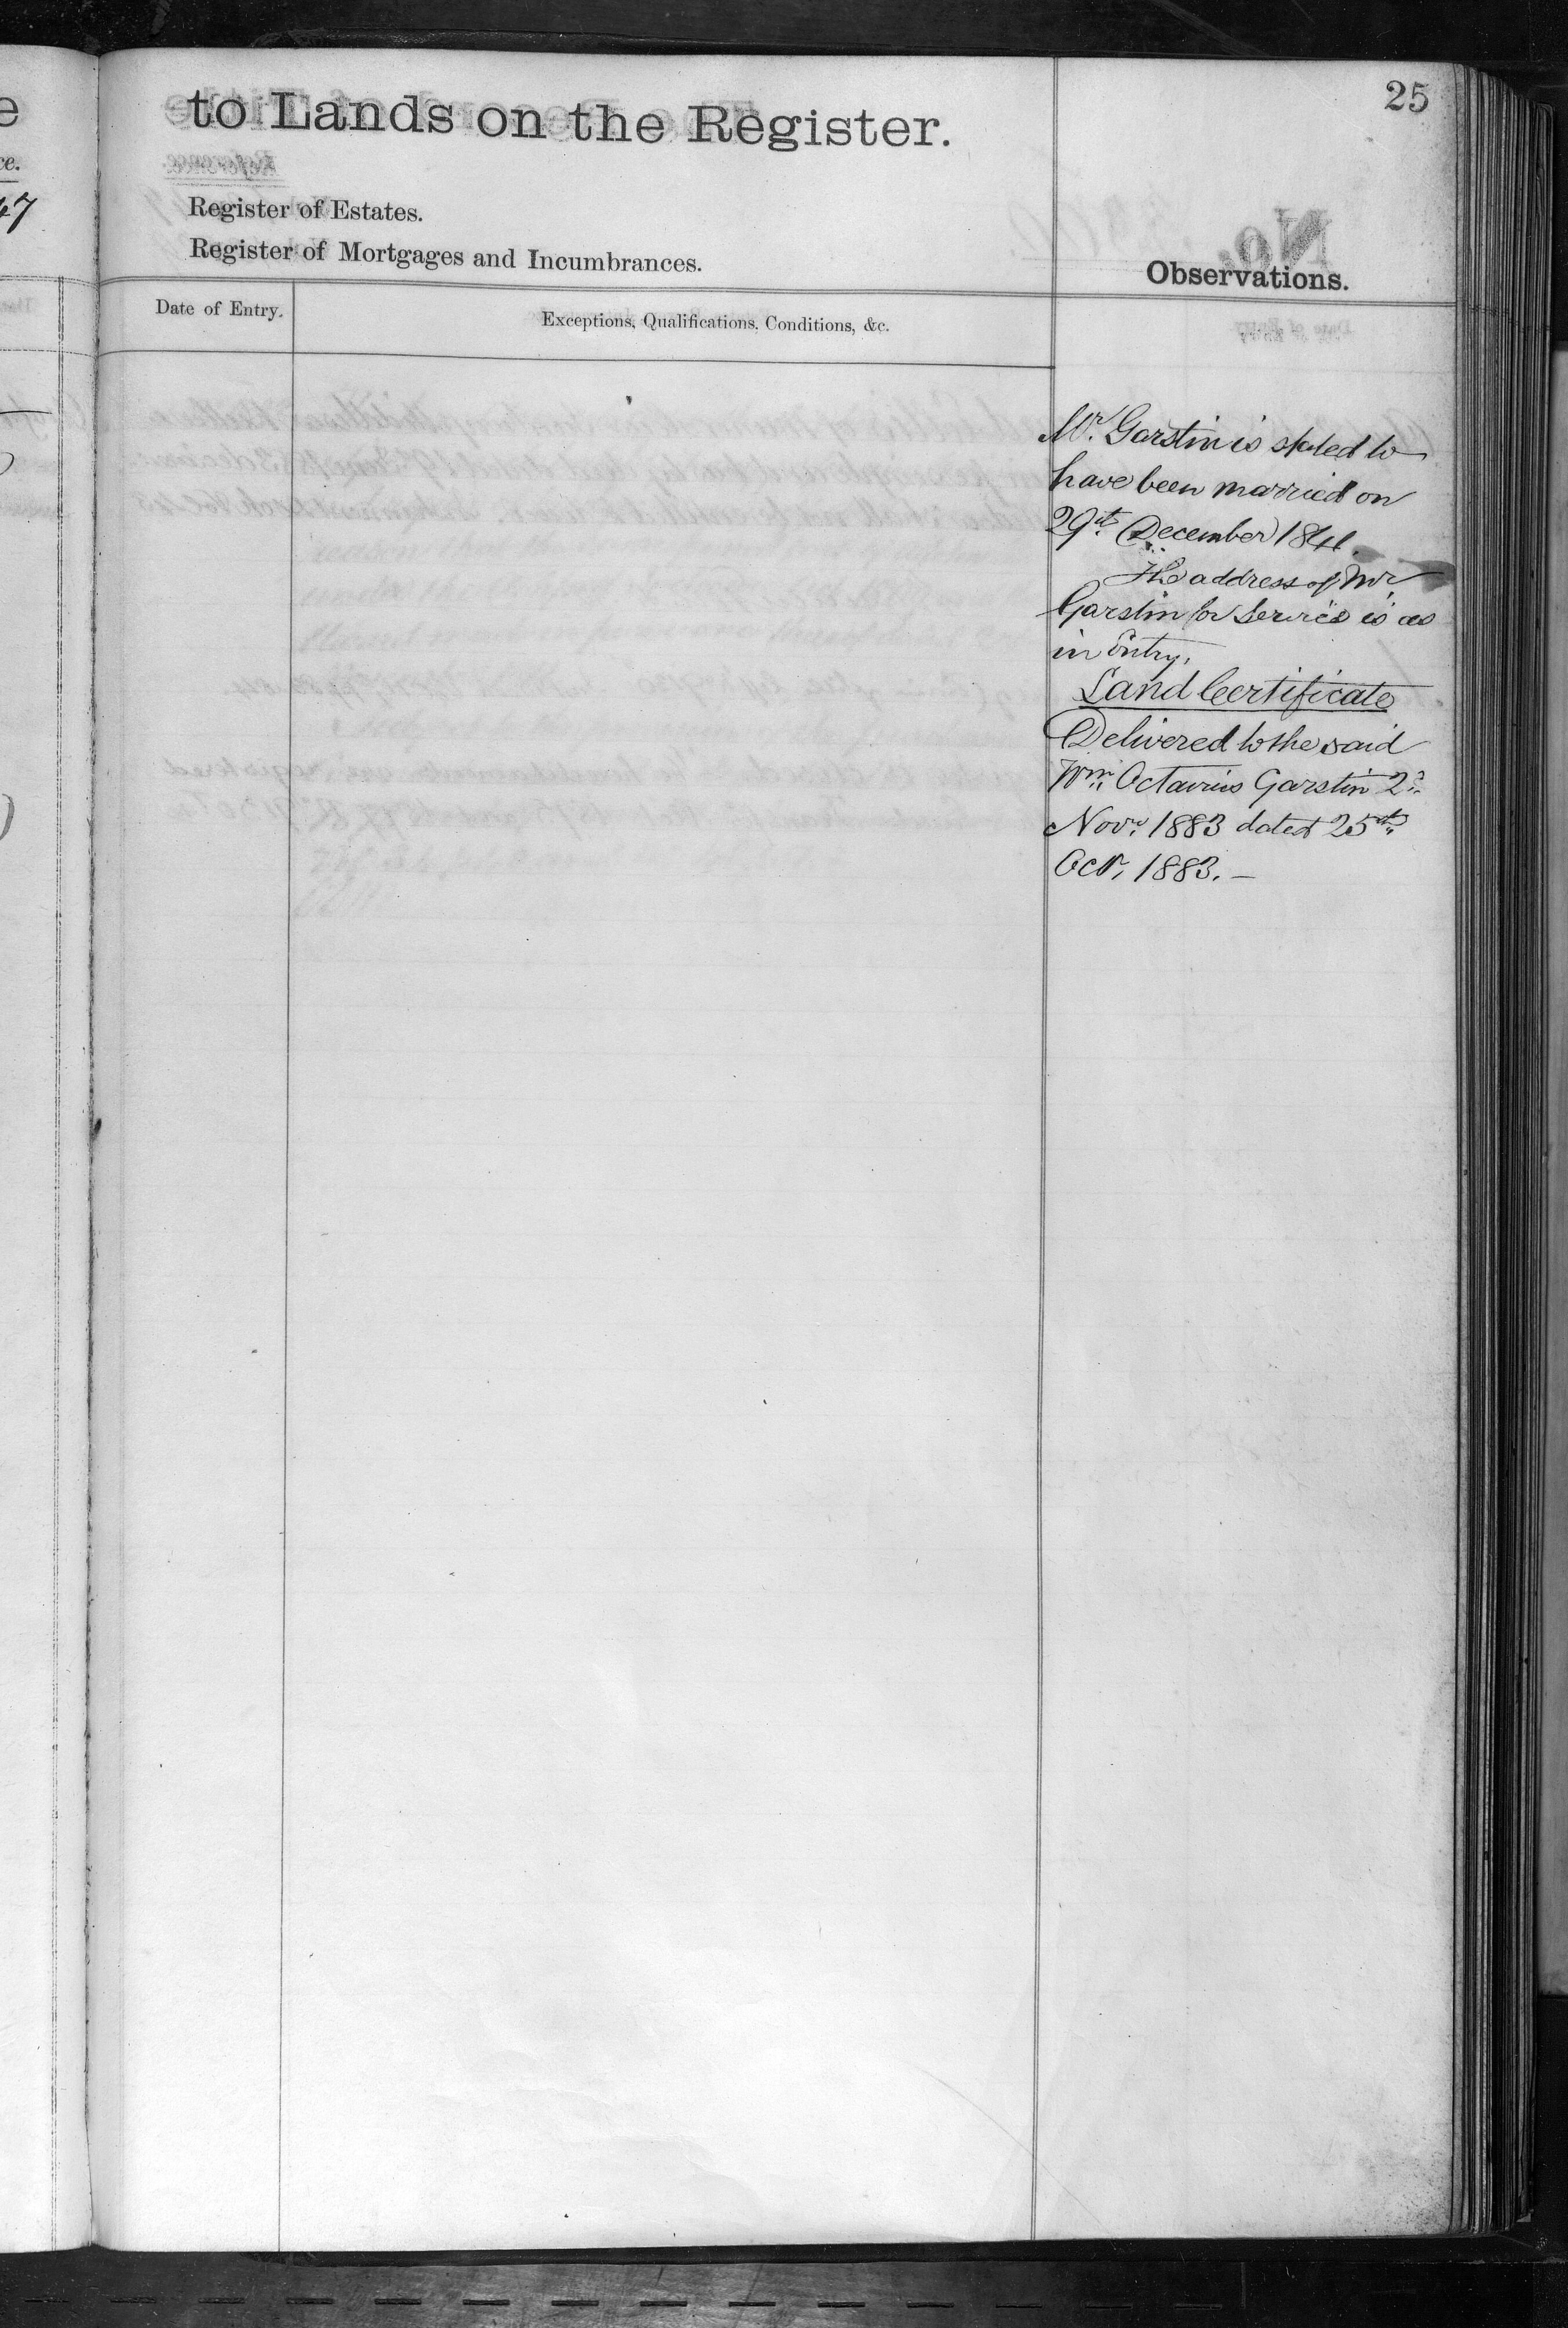 25
to Lands on the Register.
Register of Estates.
Register of Mortgages and Incumbrances.
Observations.
Date of Entry.
Exceptions, Qualifications, Conditions, &c.
Mr. Garstin is stated to
have been married on
29th December 1841.
The address of Mr
Garstin for Service is as
in Entry.
Land Certificate
Delivered to the said
Wm Octavius Garstin 2d
Novr. 1883 dated 25th
Octr. 1883. —
e
ce.
47